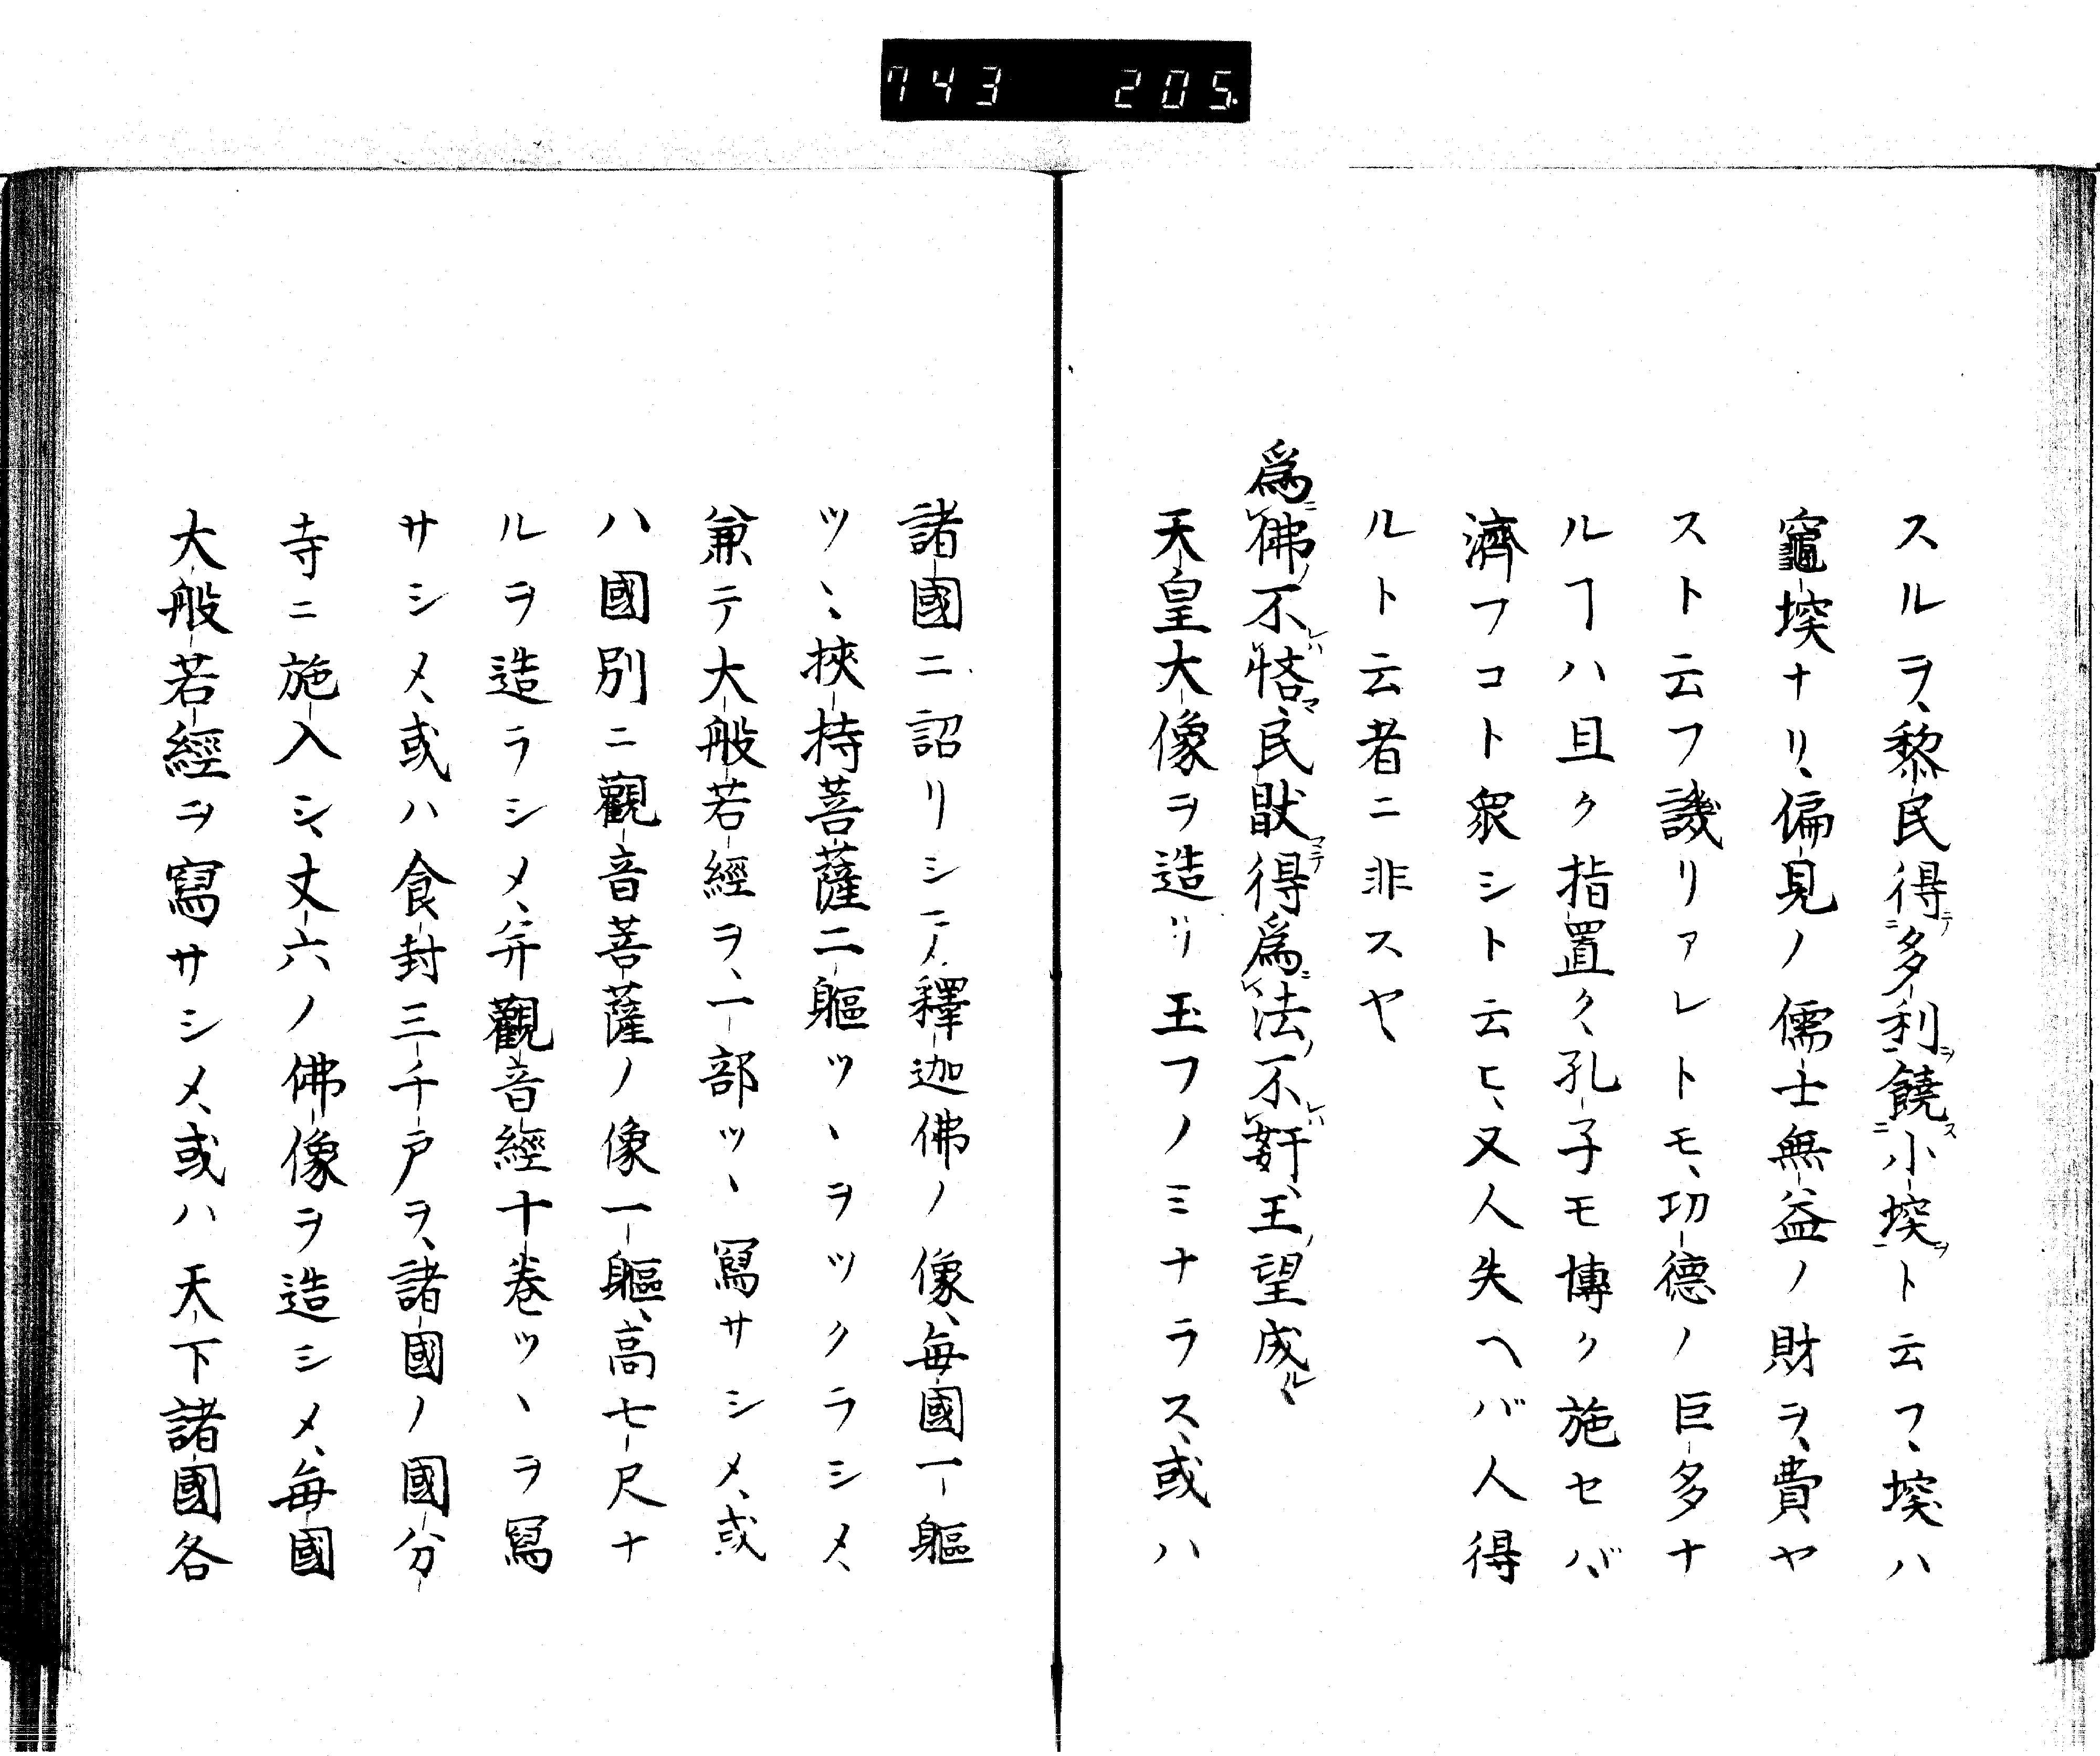 743 205.
スルヲ、黎民得テ多利ヲ饒ニス小堗ヲト云フ、堗ハ
竈堗ナリ、偏見ノ儒士無益ノ財ヲ、費ヤ
スト云フ譏リアレトモ、功德ノ巨多ナ
ルヿハ且ク指置ク、孔子モ博ク施セバ、
濟フコト衆シト云ヒ、又人失ヘバ人得
ルト云者ニ非スヤ、
爲ニ佛ノ不レハ悋マ、民猒マテ得爲ニ法ノ不レハ奸、王ノ望成ル、
天皇大像ヲ造リ玉フノミナラス、或ハ
諸國ニ詔リシテ、釋迦佛ノ像、每國一軀
ツヽ、挾持菩薩二軀ツヽヲツクラシメ、
兼テ大般若經ヲ、一部ツヽ寫サシメ、或
ハ國別ニ觀音菩薩ノ像一軀、高七尺ナ
ルヲ造ラシメ、并觀音經十卷ツヽヲ寫
サシメ、或ハ食封三千戸ヲ、諸國ノ國分
寺ニ施入シ、丈六ノ佛像ヲ造シメ、每國
大般若經ヲ寫サシメ、或ハ天下諸國各